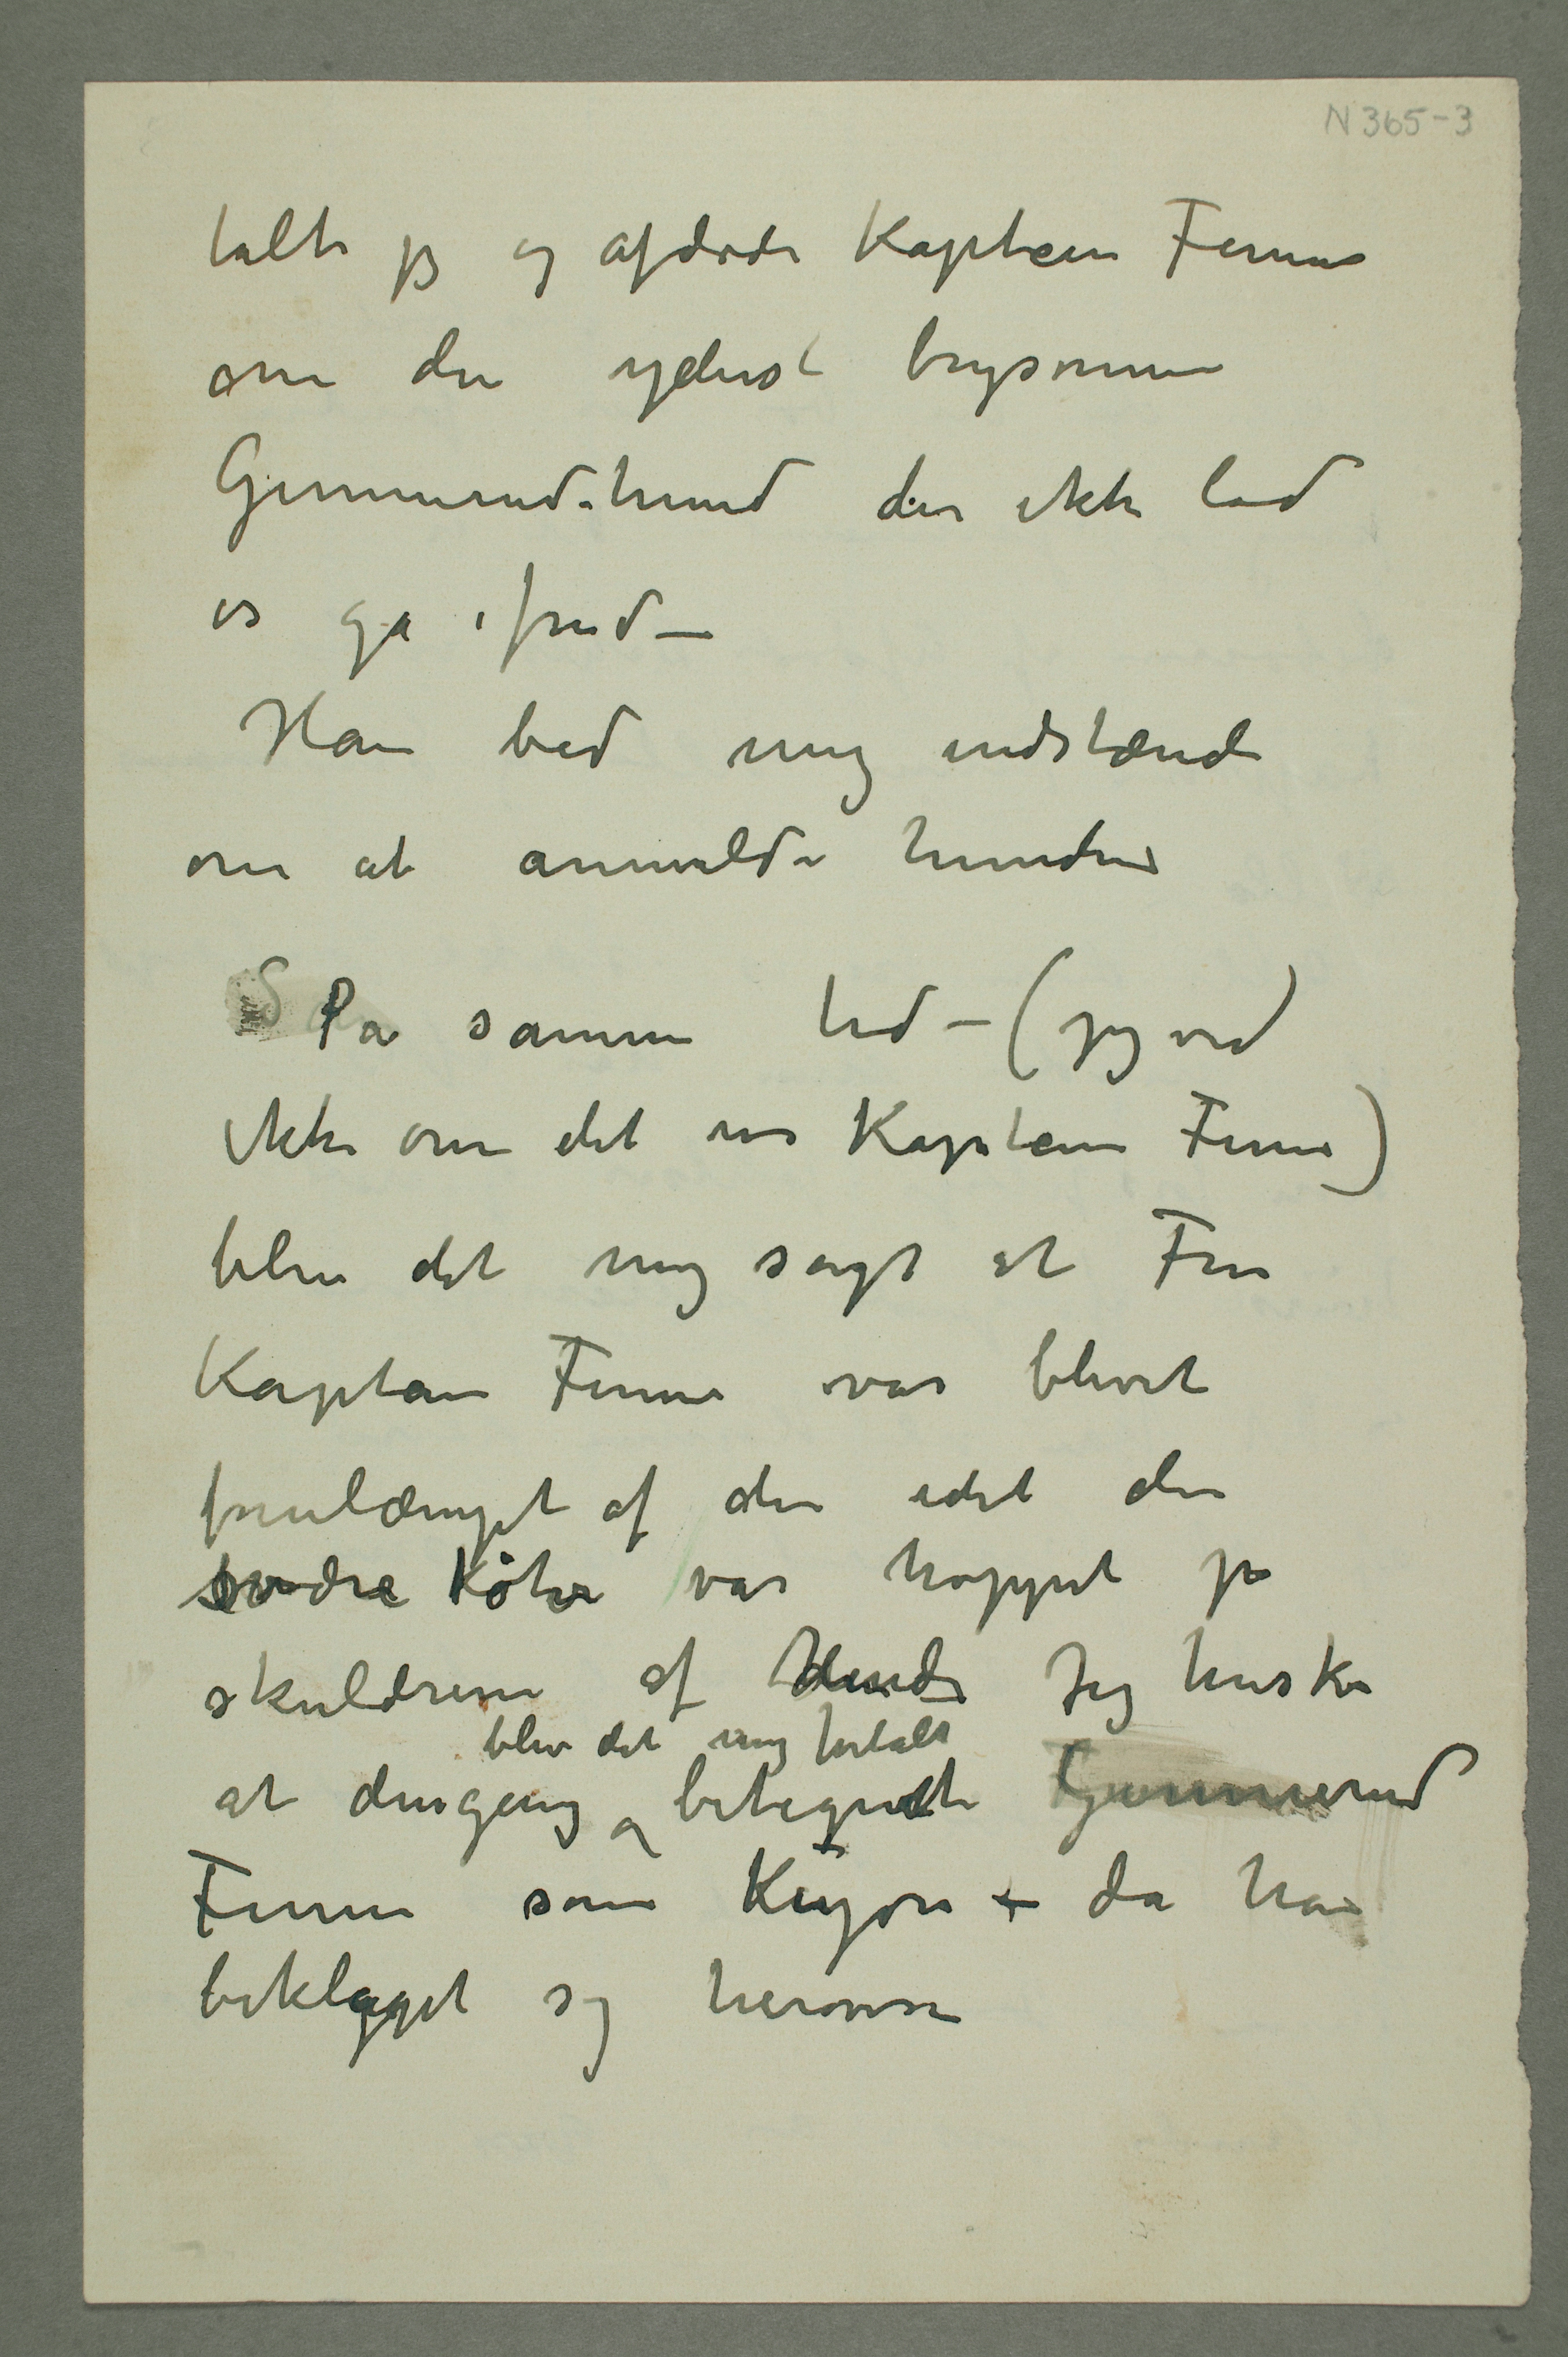 N 365-3
talte jeg og afdøde Kaptein Finne
om den yderst brysomme
Gunnerudshund der ikke lod
os gå ifred –
Han bad mig indstændi
om at anmelde hunden
På samme tid – (jeg ved
ikke om det var Kaptein Finne)
blev det mig sagt at Fru
Kaptein Finne var blevet
forulæmpet af den idet den
svære Køter var hoppet på
skuldrene af hende Jeg husker
blev det mig fortalt
at dengang betegnet Gunnerud
Finne som Kujon – da han
beklaget sig herover